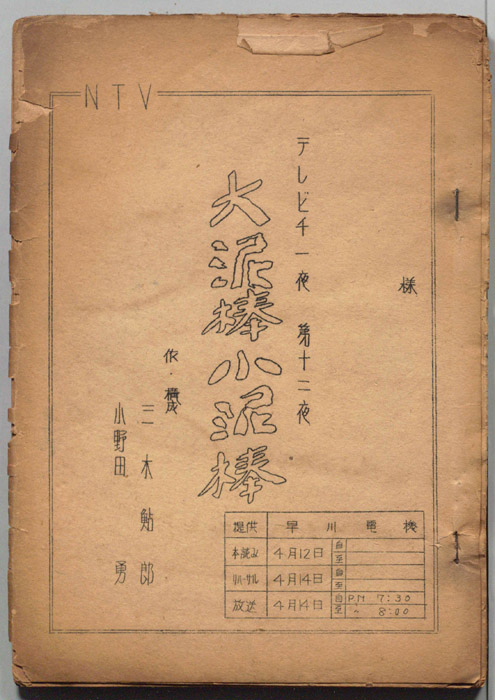 NTV
様
テレビ千一夜 第十二夜
大泥棒小泥棒
作・構成
三木鮎郎
小野田 勇
提供 早川電機
本読み 4月12日 自 至
リハーサル 4月14日 自 至
放送 4月14日 自 PM 7:30
至 〜 8:00